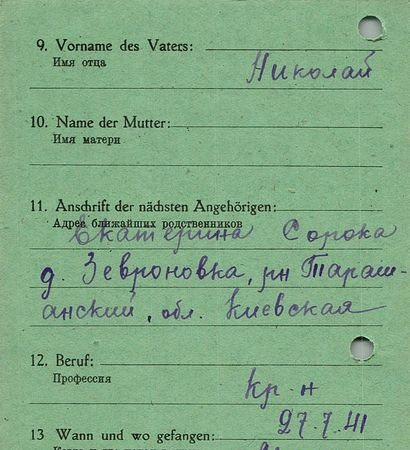 9. Vorname des Vaters:
Имя отца
Николай
10. Name der Mutter:
Имя матери
11. Anschrift der nächsten Angehörigen:
Адрес ближайших родственников
Екатерина Сорока
д. Зевроновка, рн Тараш-
анский, обл. Киевская
12. Beruf:
Профессия
кр-н
27.7.41
13 Wann und wo gefangen: